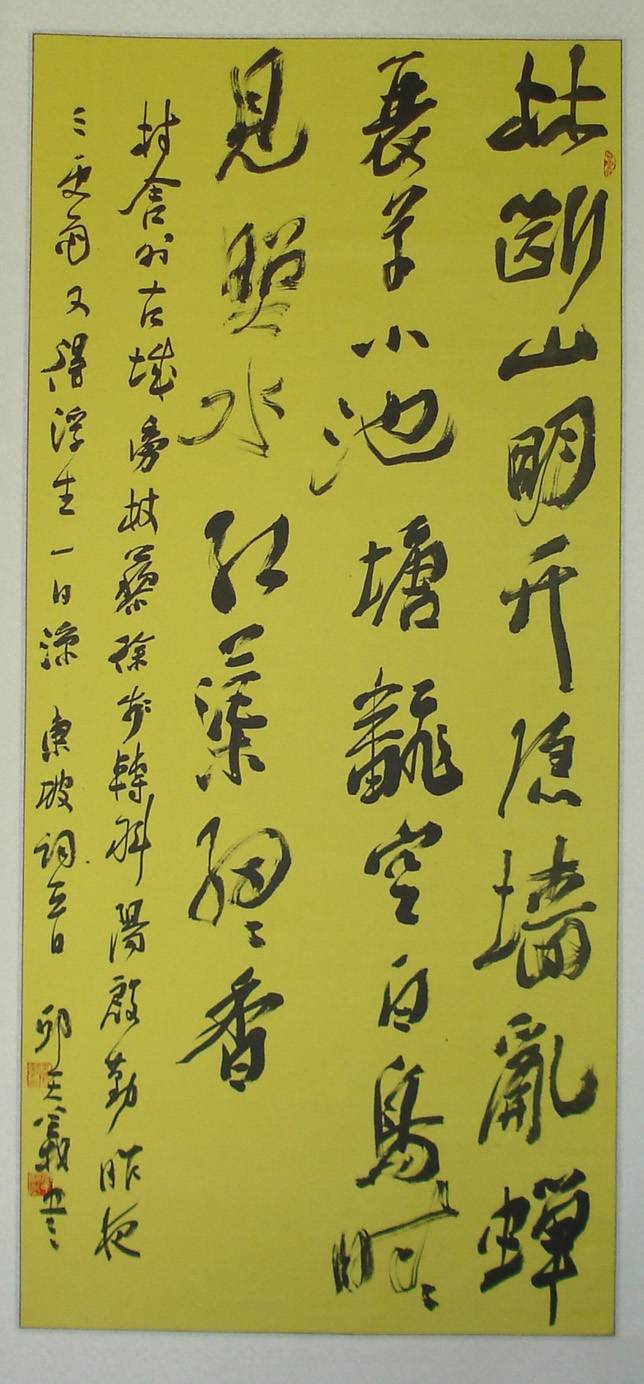 林斷山明竹隐墙亂蝉
衰草小池塘飜空白鳥時々
見照水红蕖細々香
村舍外古城旁杖藜徐步轉斜陽殷勤昨夜
三更雨又得浮生一日涼 東坡詞